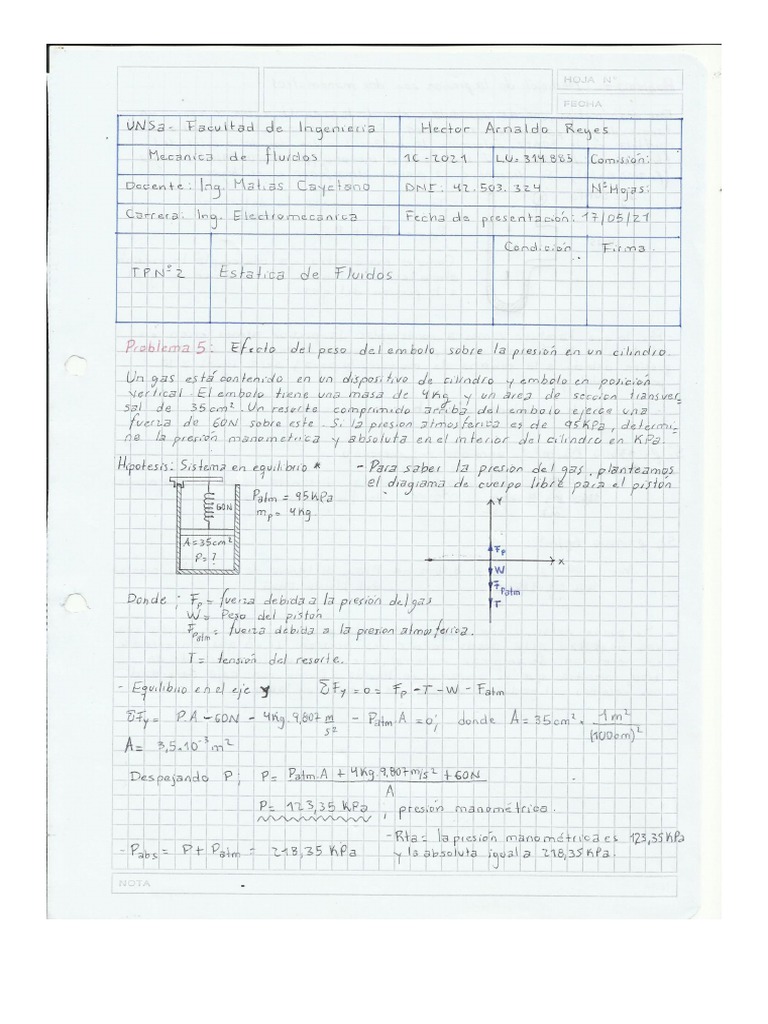 HOJA N°
FECHA
UNSa - Facultad de Ingenieria Hector Arnaldo Reyes
Mecanica de fluidos 1C-2021 LU: 314.885 Comisión:
Docente: Ing. Matias Cayetano DNI: 42.503.324 N° Hojas:
Carrera: Ing. Electromecanica Fecha de presentación: 17/05/21
TPN°2 Estatica de Fluidos Condición Firma
Problema 5: Efecto del peso del embolo sobre la presión en un cilindro.
Un gas está contenido en un dispositivo de cilindro y embolo en posición
vertical. El embolo tiene una masa de 4Kg y un área de sección transver-
sal de 35cm². Un resorte comprimido arriba del embolo ejerce una
fuerza de 60N sobre este. Si la presion atmosferica es de 95KPa, determi-
ne la presión manometrica y absoluta en el interior del cilindro en KPa.
Hipotesis: Sistema en equilibrio * - Para saber la presion del gas, planteamos
el diagrama de cuerpo libre para el pistón
60N
Patm = 95KPa
mp = 4Kg
A=35cm²
P=?
Y
X
Fp
W
FPatm
T
Donde; Fp = fuerza debida a la presion del gas
W = Peso del pistón
FPatm = fuerza debida a la presion atmosferica.
T = tensión del resorte.
- Equilibrio en el eje y ΣFy=0= Fp-T-W-Fatm
ΣFy= P.A-60N-4Kg.9,807 m/s² - Patm.A=0; donde A=35cm² * 1m²/(100cm)²
A= 3,5.10⁻³m²
Despejando P; P= Patm.A+4Kg.9,807m/s²+60N / A
P= 123,35 KPa ; presión manométrica.
- Rta= la presión manométrica es 123,35KPa
- Pabs = P+Patm = 218,35 KPa y la absoluta igual a 218,35KPa.
NOTA